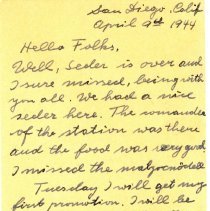 San Diego, Calif
April 9th 1944
Hello Folks,
Well, Seder is over and
I sure missed, being with
you all. We had a nice
seder here. The comander
of the station was there
and the food was very good
I missed the
Tuesday I will get my
first promotion. I will be